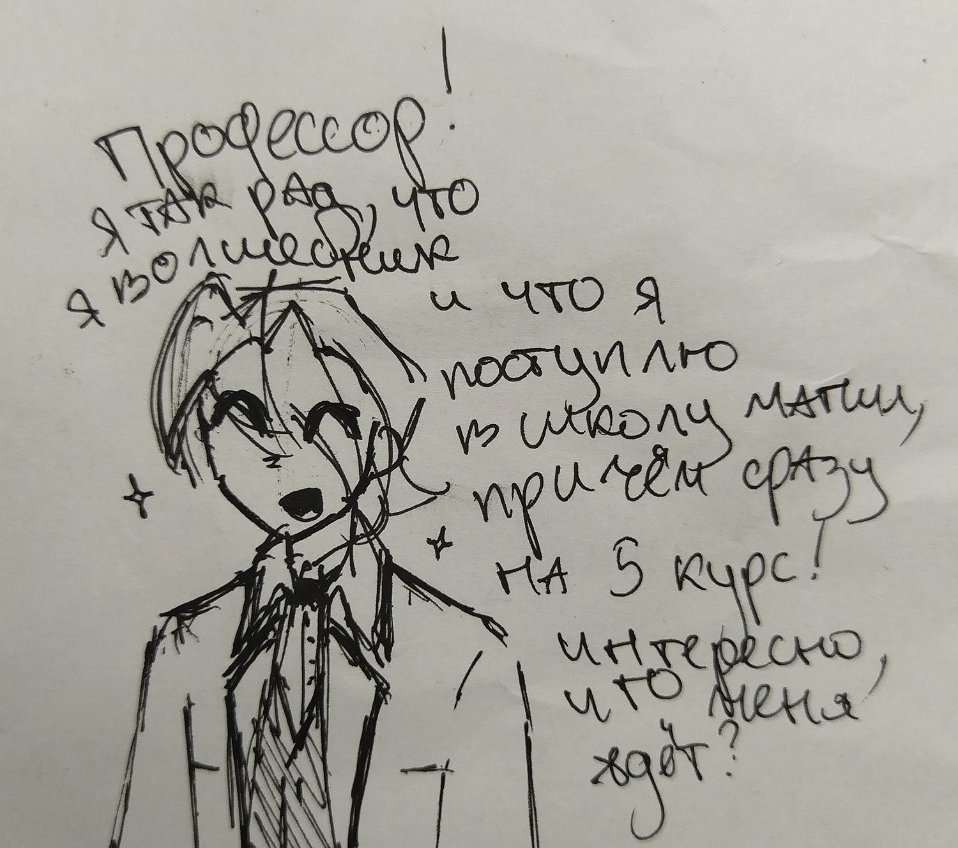 Профессор!
я так рад, что
я волшебник
и что я
поступлю
в школу магии,
причём сразу
на 5 курс!
интересно,
что меня
ждёт?